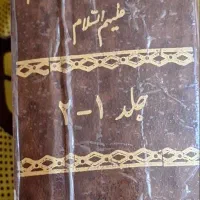 علیہم السلام
جلد ۱-۲